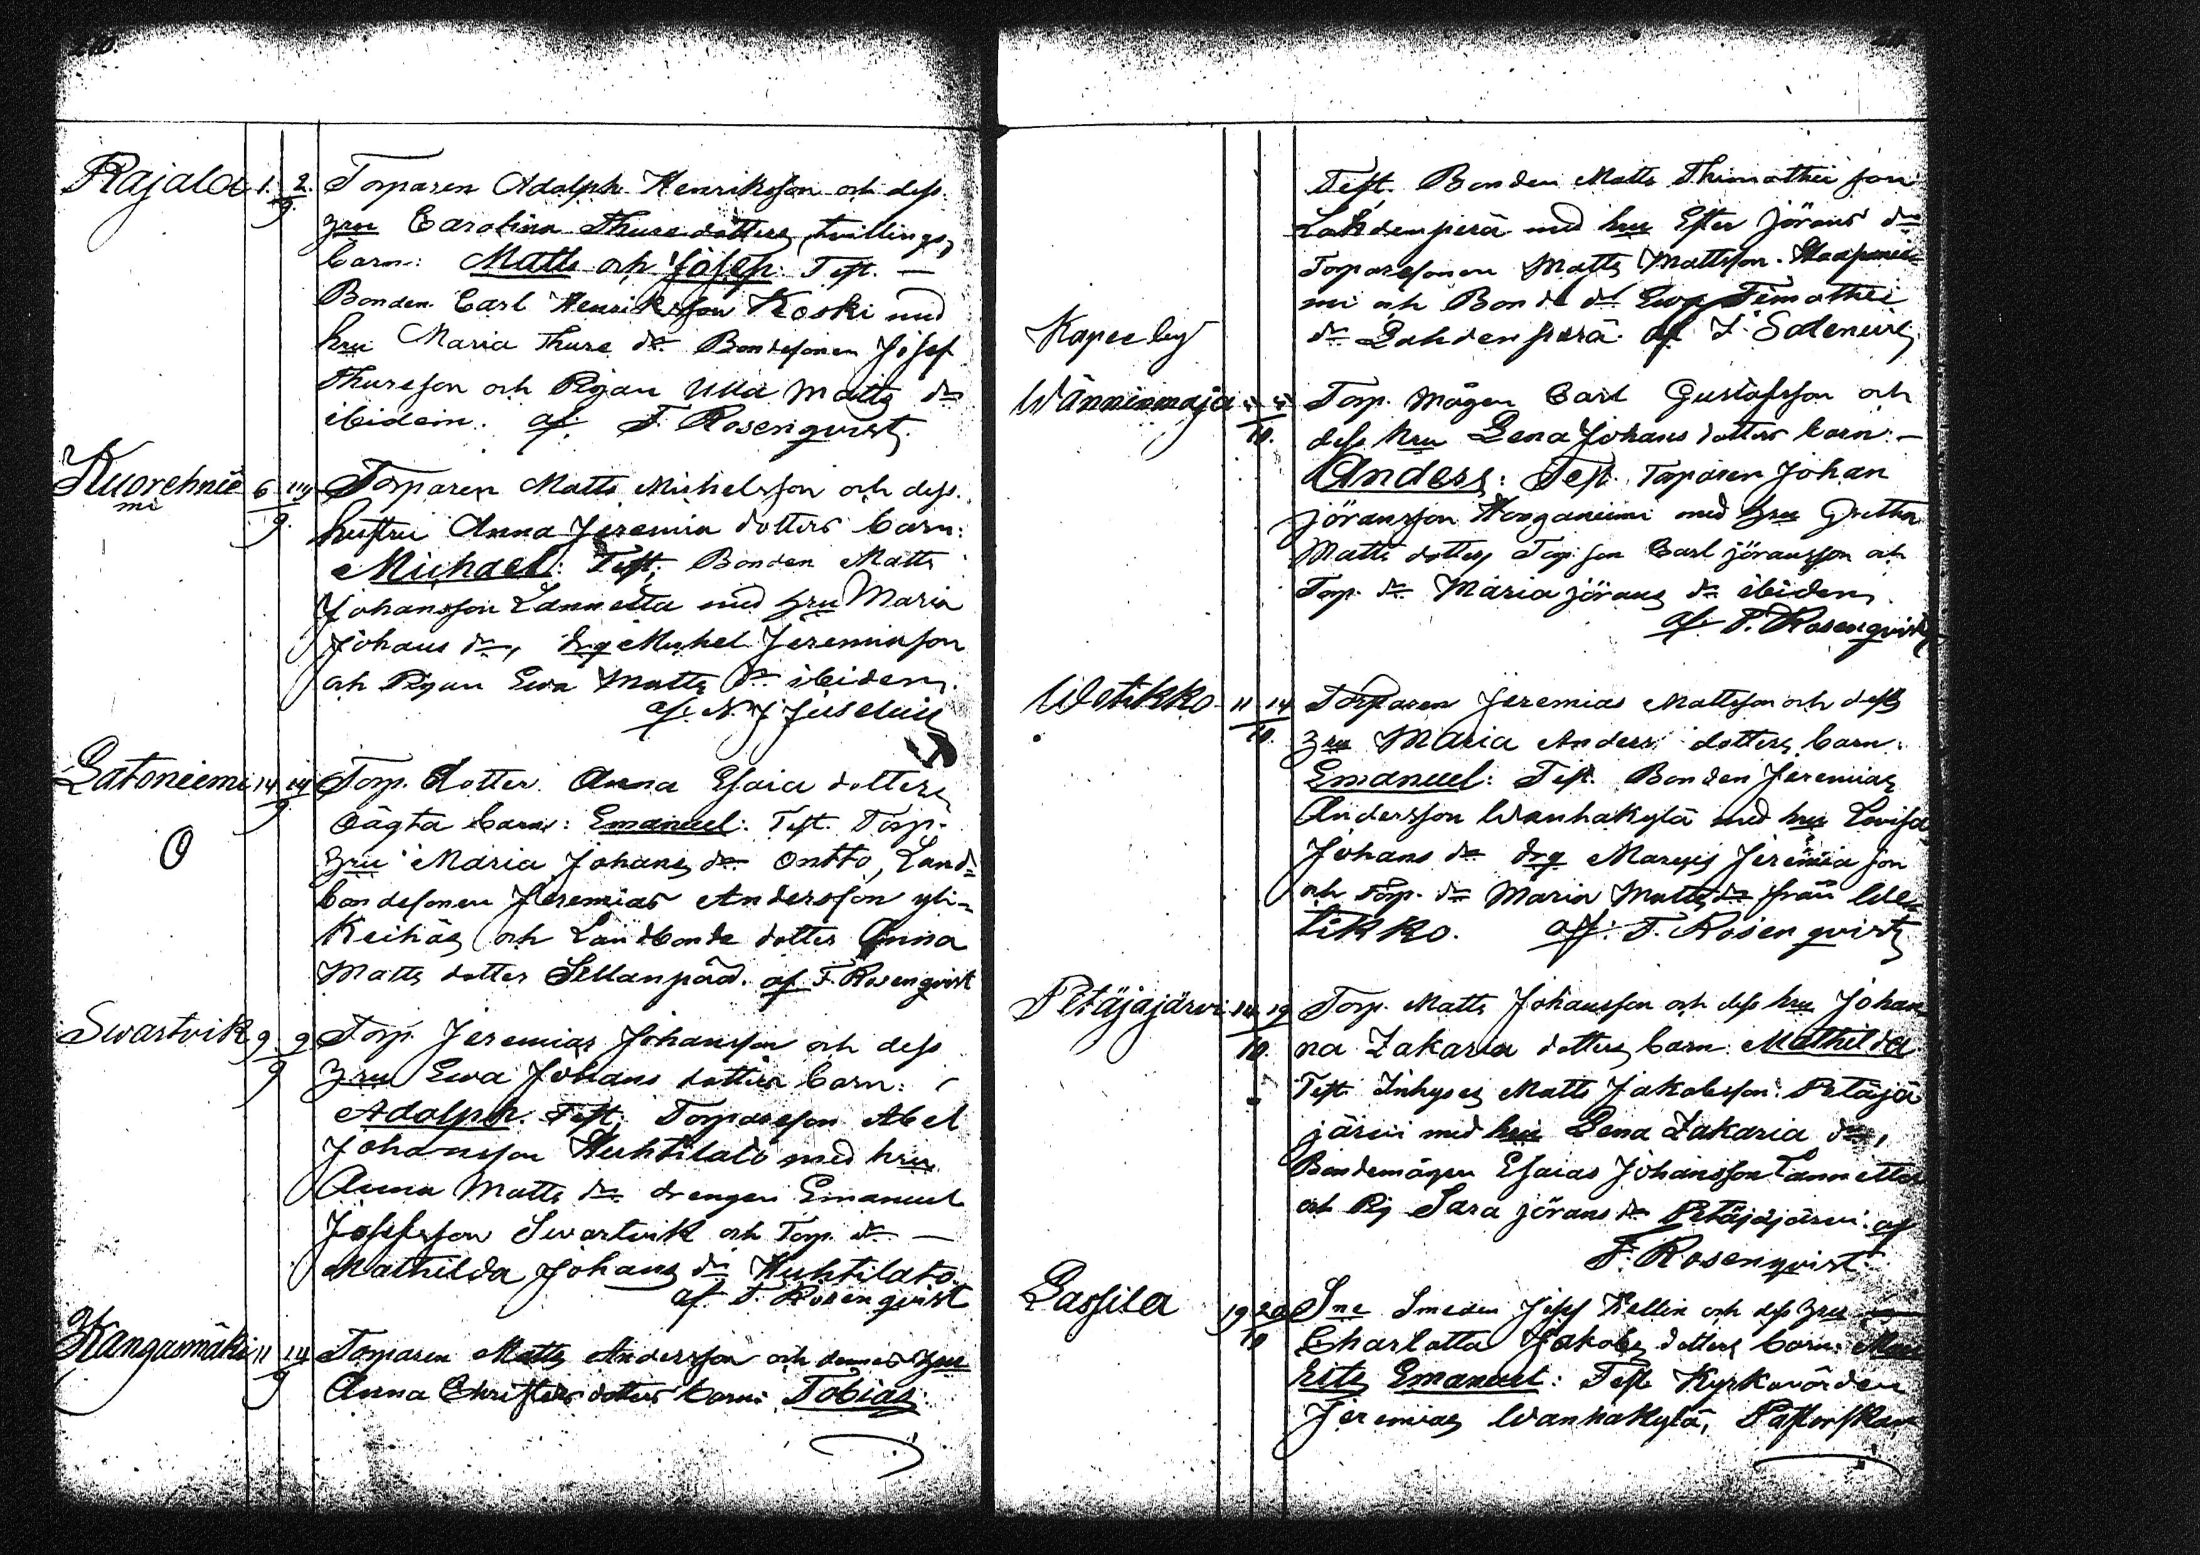 210.
Rajala 1. 2. Torparen Adolph Henriksson och dess
9. hru Carolina Thuredotters, tvillings,
barn: Matts och Josef: Test. —
Bonden Carl Henriksson Koski med
hru Maria Thure dr Bondesonen Josef
Thuresson och Pigan Ulla Matts dr
ibidem. af F. Rosenqvist
Kuorehnie 6 14 Torparen Matts Michelsson och dess.
mi 9. hustru Anna Jeremia dotters barn:
Michael: Test. Bonden Matts
Johansson Lannetta med hru Maria
Johans dr, drg Michel Jeremiasson
och Pigan Ewa Matts dr ibidem.
af N. J. Juselius
Latoniemi 14 14 Torp. dotter Anna Esaia dotters
9 oägta barn: Emanuel: Test. Torp.
O hru Maria Johans dr Ontto, Land-
bondesonen Jeremias Andersson yli-
Keihäs och Landbonde dotter Anna
Matts dotter Sillanpää. af F. Rosenqvist
Swartvik 9 9 Torp. Jeremias Johansson och dess
9 hru Ewa Johans dotters barn:
Adolph. Test. Torpareson Abel
Johansson Huhtilato med hru
Anna Matts dr drengen Emanuel
Josefsson Swartvik och Torp. dr —
Mathilda Johans dr Huhtilato.
af F. Rosenqvist
Kangasmäki 11 14 Torparen Matts Andersson och dennes hru
9 Anna Christers dotters barn: Tobias:
Test. Bonden Matts Thimothei son
Lahdenperä med hru Ester Jörans dr
Torparesonen Matts Mattsson Haapanie-
mi och Bonde dr Ewa Timothei
dr Lahdenperä. af I. Salenius
Kapee by
Wänninmaja Torp. mågen Carl Gustafsson och
10. dess hru Lena Johans dotters barn: —
Anders: Test. Torparen Johan
Jöransson Honganiemi med hru Gretha
Matts dotter Torp. son Carl Jöransson och
Torp. dr Maria Jörans dr ibidem.
af F. Rosenqvist
Wetikko 11 14 Torparen Jeremias Mattsson och dess
10. hru Maria Anders dotters barn:
Emanuel: Test. Bonden Jeremias
Andersson Wanhakylä med hru Lovisa
Johans dr drg Jeremia son
och Torp. dr Maria Matts dr från We-
tikko. af: F. Rosenqvist
Petäjäjärvi 14 19 Torp. Matts Johansson och dess hru Johan
10. na Zakaria dotters barn: Mathilda.
Test Inhyses Matts Jakobsson Petäjä
järvi med hru Lena Zakaria dr,
Bondemågen Esaias Johansson Lannetta
och Pig Sara Jörans dr Petäjäjärvi. af
F. Rosenqvist.
Lassila 19 20 Sne Smeden Josef Hellin och dess hru
10 Charlotta Jakobs dotters barn: Mau
ritz Emanuel: Test Kyrkovärden
Jeremias Wanhakylä, Pastorskan